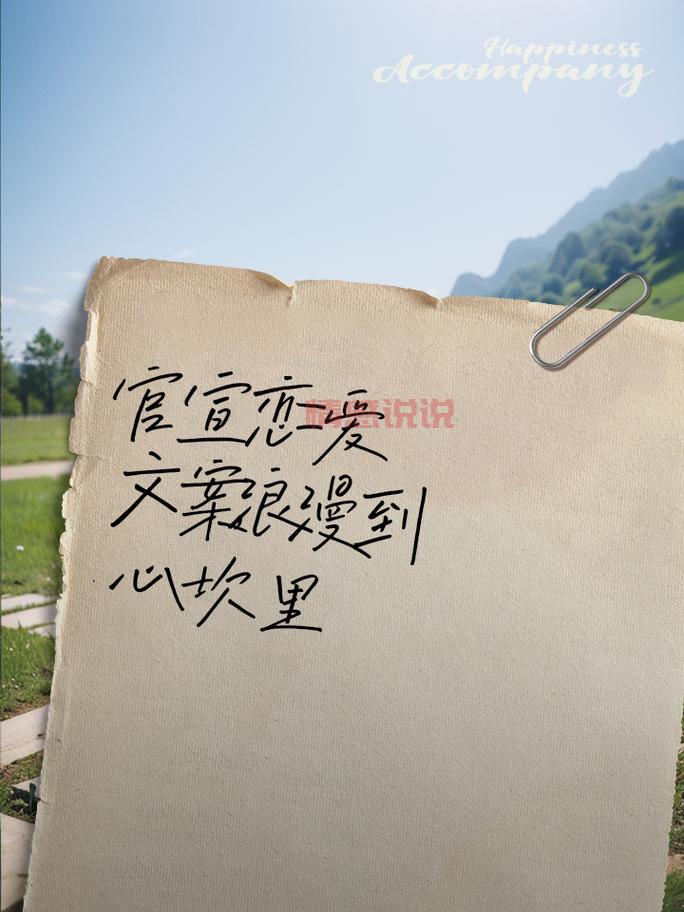 Happiness
Accompany
官宣恋爱
情感说说
文案浪漫到
心坎里